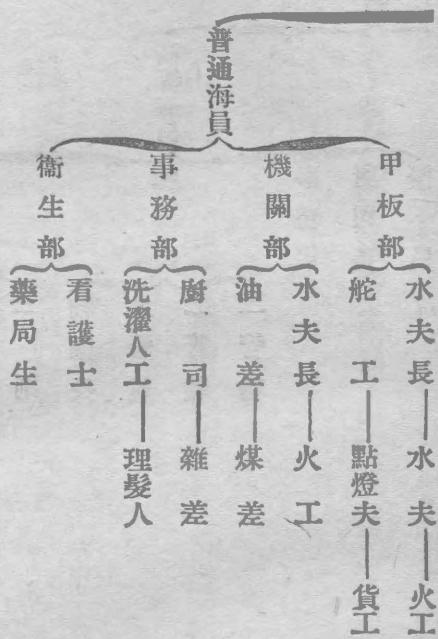 普通海員
甲板部
水夫長——水夫——火工
舵工——點燈夫——貨工
機關部
水夫長——火工
油差——煤差
事務部
廚司——雜差
洗濯人工——理髮人
衞生部
看護士
藥局生